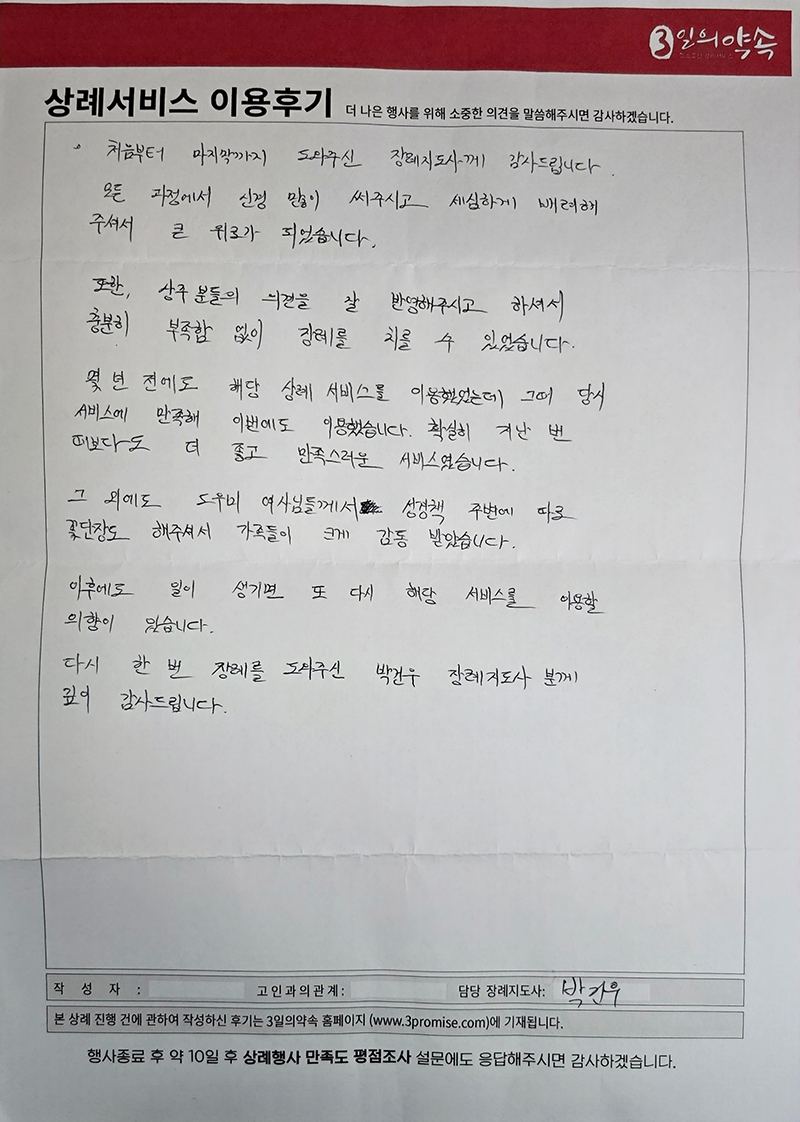 3일의약속
상례서비스 이용후기 더 나은 행사를 위해 소중한 의견을 말씀해주시면 감사하겠습니다.
처음부터 마지막까지 도와주신 장례지도사께 감사드립니다.
모든 과정에서 신경 많이 써주시고 세심하게 배려해
주셔서 큰 위로가 되었습니다.
또한, 상주 분들의 의견을 잘 반영해주시고 하셔서
충분히 부족함 없이 장례를 치를 수 있었습니다.
몇 년 전에도 해당 상례 서비스를 이용했었는데 그때 당시
서비스에 만족해 이번에도 이용했습니다. 확실히 지난 번
때보다도 더 좋고 만족스러운 서비스였습니다.
그 외에도 도우미 여사님들께서 성경책 주변에 따로
꽃단장도 해주셔서 가족들이 크게 감동 받았습니다.
이후에도 일이 생기면 또 다시 해당 서비스를 이용할
의향이 있습니다.
다시 한 번 장례를 도와주신 박건우 장례지도사 분께
깊이 감사드립니다.
작 성 자 : 고인과의관계: 담당 장례지도사: 박건우
본 상례 진행 건에 관하여 작성하신 후기는 3일의약속 홈페이지 (www.3promise.com)에 기재됩니다.
행사종료 후 약 10일 후 상례행사 만족도 평점조사 설문에도 응답해주시면 감사하겠습니다.